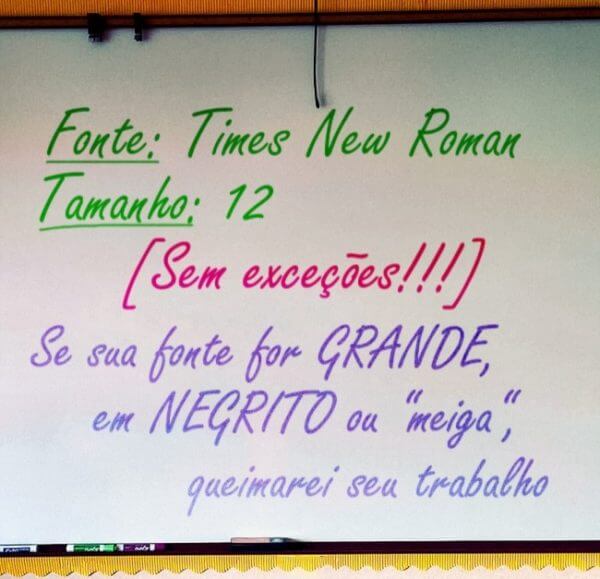 Fonte: Times New Roman
Tamanho: 12
[Sem exceções!!!]
Se sua fonte for GRANDE,
em NEGRITO ou "meiga",
queimarei seu trabalho